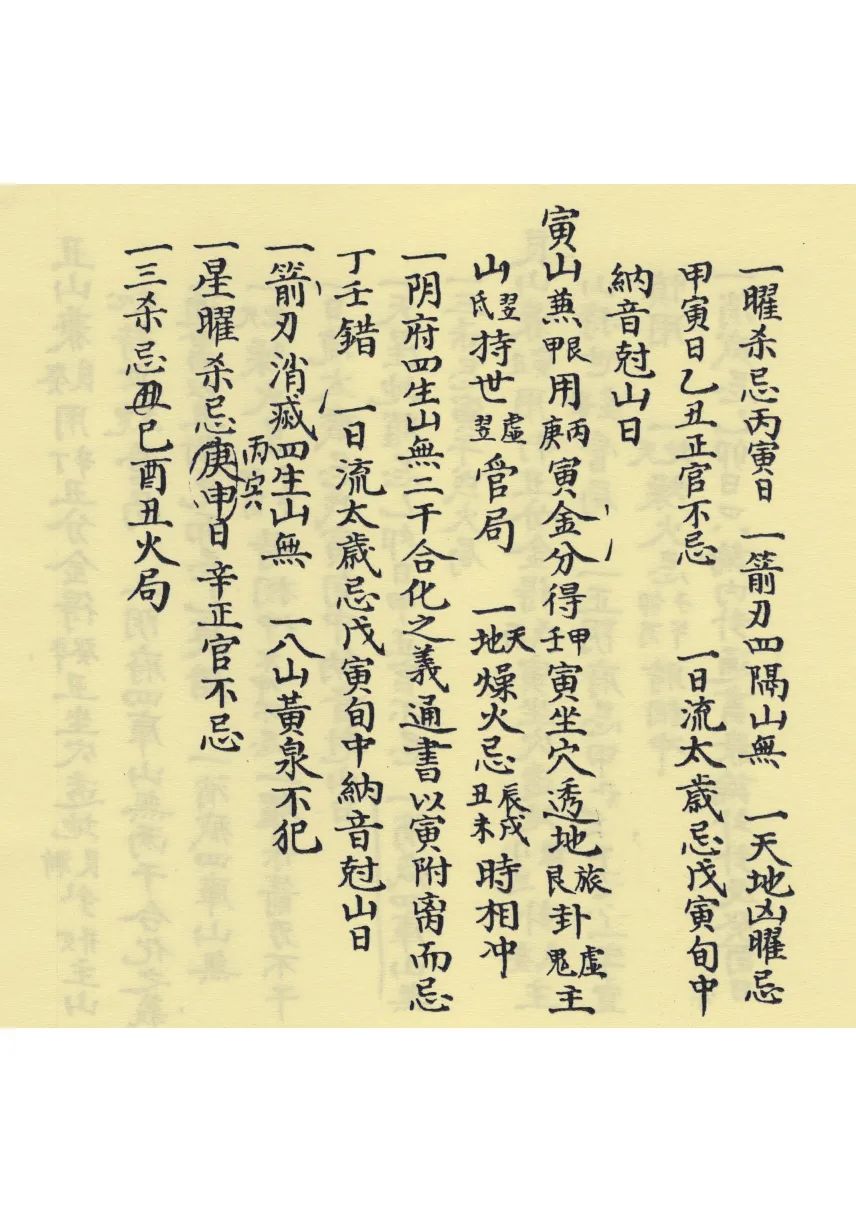 一曜杀忌丙寅日 一箭刃四隅山無 一天地凶曜忌
甲寅日乙丑正官不忌 一日流太歲忌戊寅旬中
納音尅山日
寅山蕪甲艮用丙庚寅金分得甲壬寅坐穴透地旅艮卦虛鬼主
山翌氐持世虛翌管局 一天地燥火忌辰戌丑未時相冲
一阴府四生山無二干合化之義通書以寅附离而忌
丁壬錯 一日流太歲忌戊寅旬中納音尅山日
一箭刃消滅四生山無 一八山黃泉不犯
一星曜杀忌庚申丙寅日辛正官不忌
一三杀忌丑巳酉丑火局